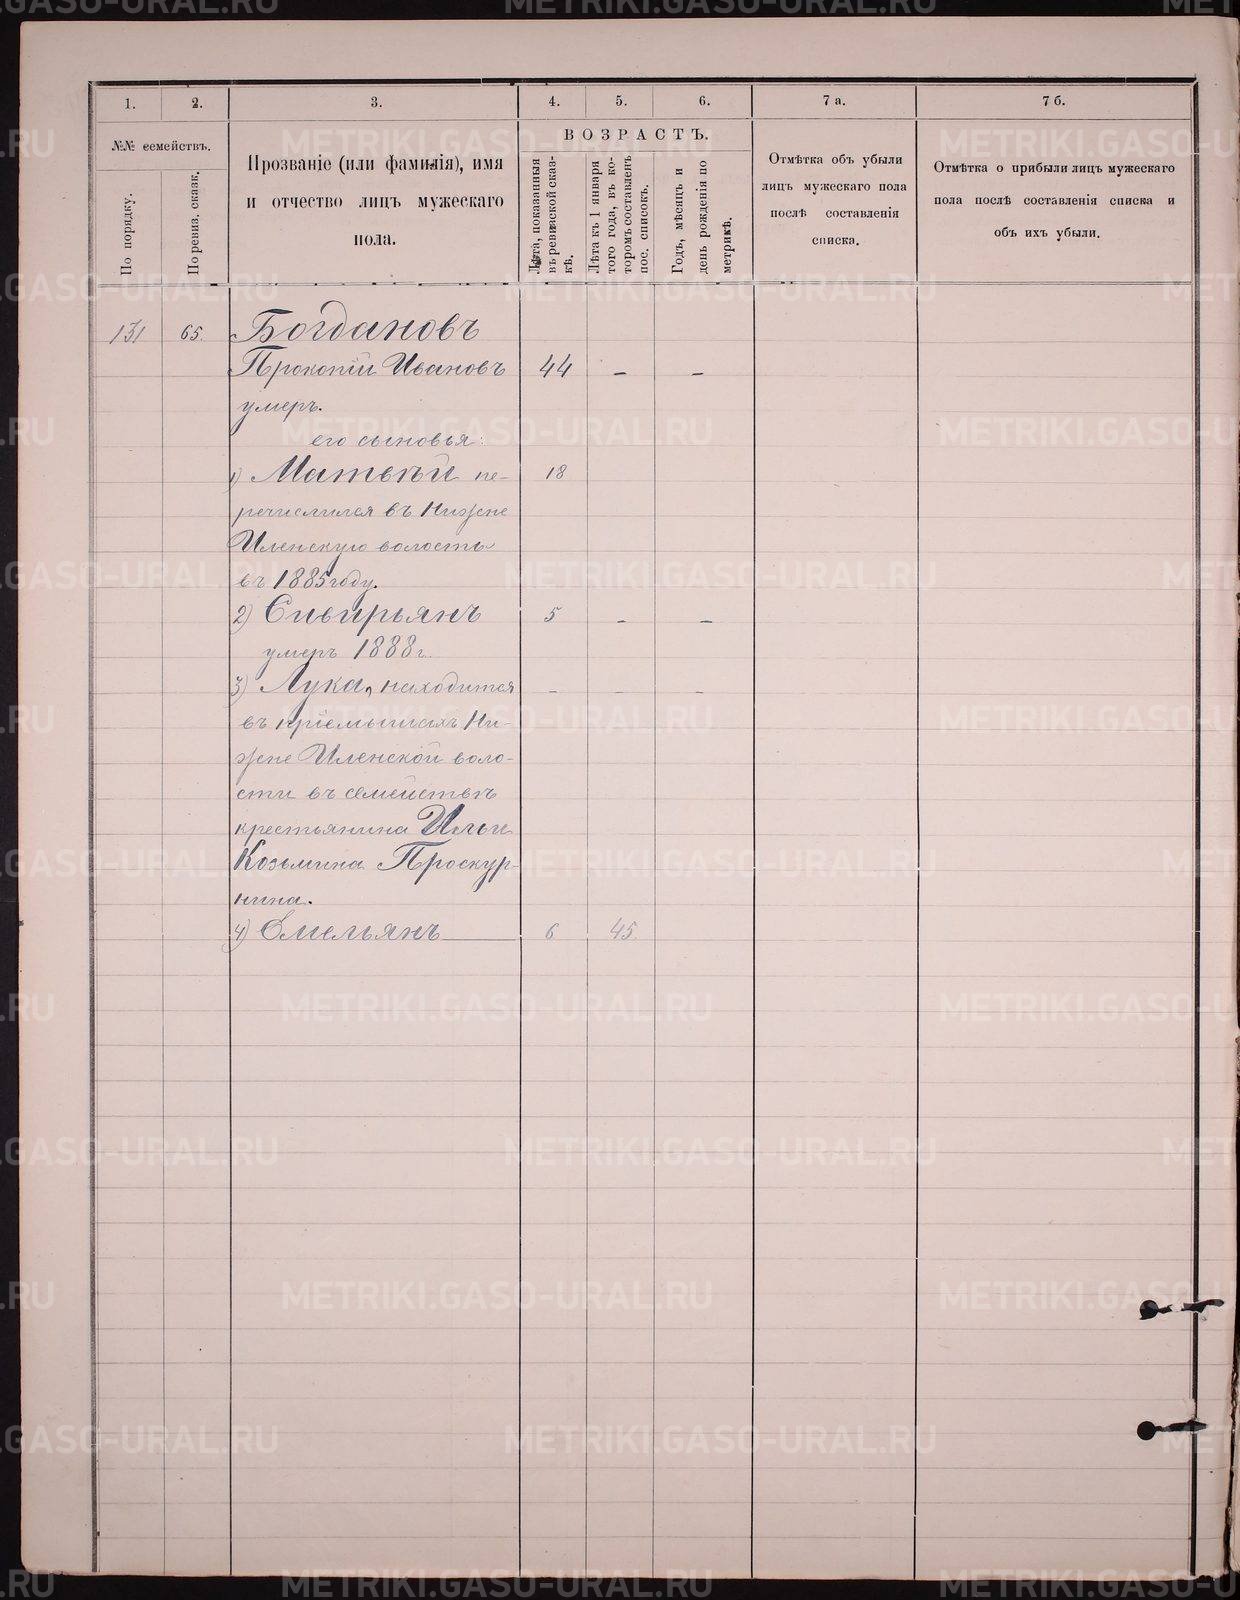 1.
2.
3.
4.
5.
6.
7 а.
7 б.
№№ семействъ.
По порядку.
По ревиз. сказк.
Прозваніе (или фамилія), имя
и отчество лицъ мужескаго
пола.
ВОЗРАСТЪ.
Лѣта, показанныя
въ ревизской сказ-
кѣ.
Лѣта къ 1 января
того года, въ ко-
торомъ составленъ
пос. списокъ.
Годъ, мѣсяцъ и
день рожденія по
метрикѣ.
Отмѣтка объ убыли
лицъ мужескаго пола
послѣ составленія
списка.
Отмѣтка о прибыли лицъ мужескаго
пола послѣ составленія списка и
объ ихъ убыли.
131 65. Богдановъ
Прокопій Ивановъ 44 – –
умеръ.
его сыновья:
1) Матвѣй пе- 18
речислился въ Нижне
Иленскую волость
въ 1885 году.
2) Сивирьянъ 5 – –
умеръ 1888 г.
3) Лука, находится – – –
въ пріемышахъ Ни-
жне Иленской воло-
сти въ семействѣ
крестьянина Ильи
Козьмина Проскур-
нина.
4) Емельянъ 6 45.
METRIKI.GASO-URAL.RU